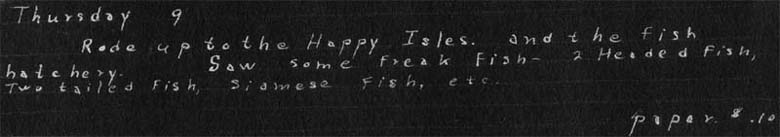 Thursday 9
Rode up to the Happy Isles. and the fish
hatchery. Saw some Freak Fish- 2 Headed Fish,
Two tailed Fish, Siamese Fish, etc.
paper $.10